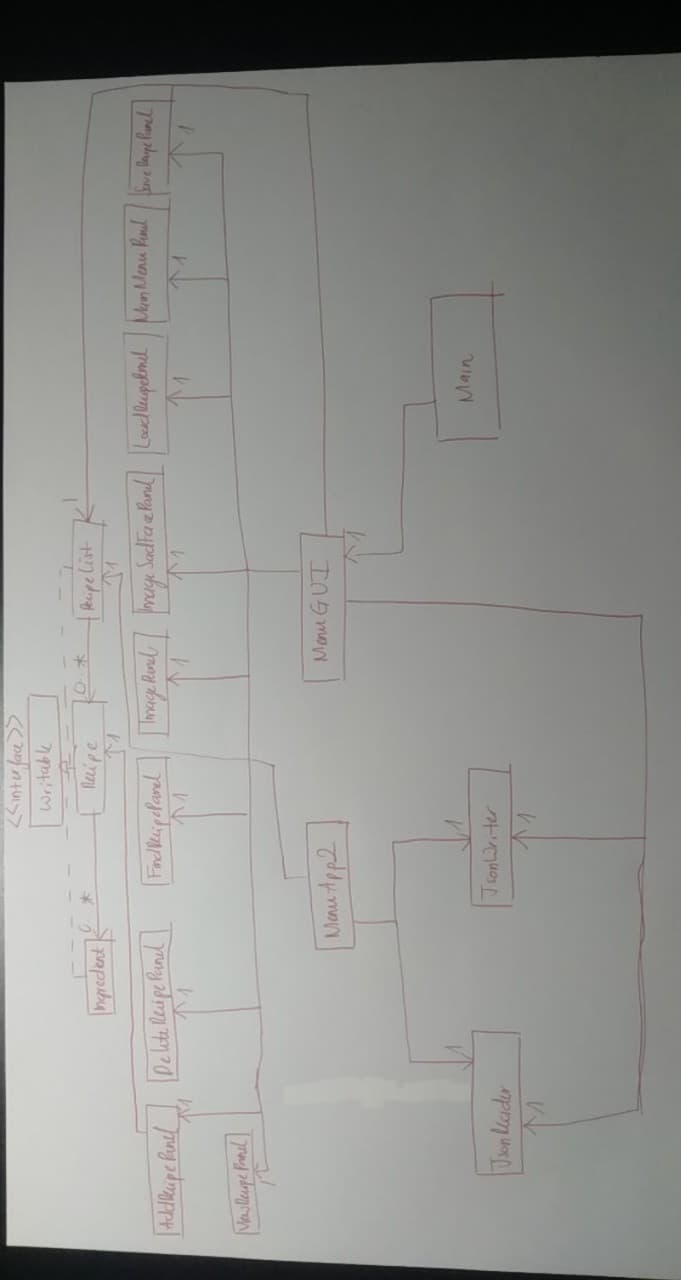 <<interface>>
Writable
Ingredient
0..*
Recipe
0..*
RecipeList
1
1
1
AddRecipePanel
DeleteRecipePanel
FindRecipePanel
ImagePanel
ImageSadFacePanel
LoadRecipePanel
MainMenuPanel
SaveRecipePanel
1
1
1
1
1
1
1
1
ViewRecipePanel
1
MenuApp2
MenuGUI
1
Main
1
1
JsonReader
JsonWriter
1
1